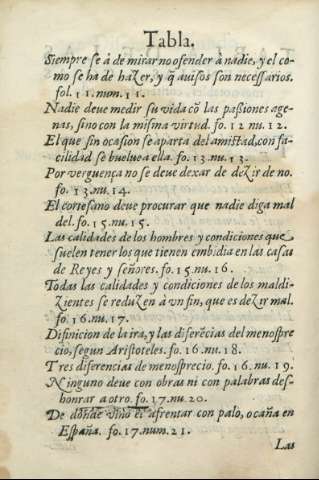 Tabla.
Siempre se á de mirar no ofender à nadie, y el co
mo se ha de hazer, y q̃ auisos son necessarios.
fol. 11. num. 11.
Nadie deve medir su vida cõ las passiones age-
nas, sino con la misma virtud. fo. 12 nu. 12.
El que sin ocasiõ se aparta del amistad, con fa-
cilidad se buelue a ella. fo. 13. nu. 13.
Por verguença no se deve dexar de dezir de no.
fo. 13. nu. 14.
El cortesano deve procurar que nadie diga mal
del. fo. 15. nu. 15.
Las calidades de los hombres y condiciones que
suelen tener los que tienen embidia en las casas
de Reyes y señores. fo. 15. nu. 16.
Todas las calidades y condiciones de los maldi-
zientes se reduzen à vn fin, que es dezir mal.
fo. 16. nu. 17.
Difinicion de la ira, y las diferẽcias del menospre
cio, segun Aristoteles. fo. 16. nu. 18.
Tres diferencias de menosprecio. fo. 16. nu. 19.
Ninguno deve con obras ni con palabras des-
honrar a otro. fo. 17. nu. 20.
De dõnde vino el afrentar con palo, o caña en
España. fo. 17. num. 21.
Las